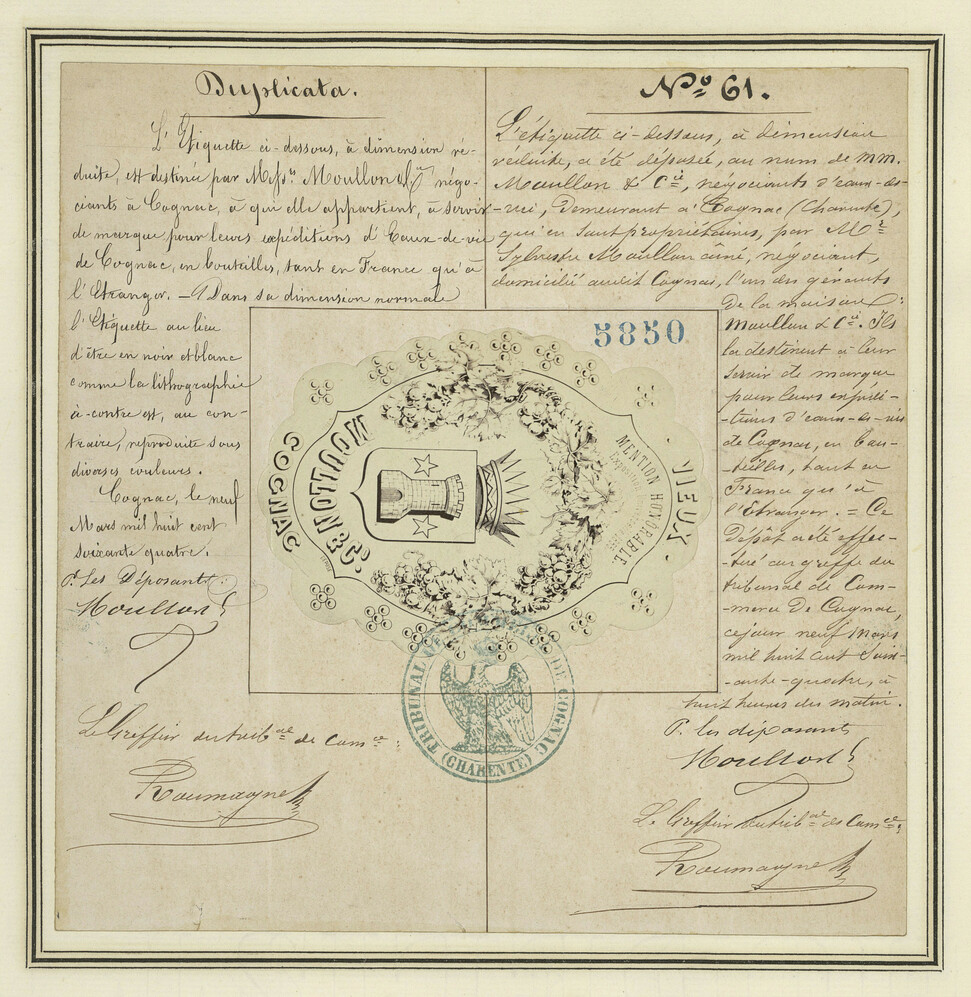 Duplicata.
L'Etiquette ci-dessous, à dimension ré-
duite, est destinée par Messrs Moullon & Cie négo-
ciants à Cognac, à qui elle appartient, à servir
de marque pour leurs expéditions d'Eaux-de-vie
de Cognac, en bouteilles, tant en France qu'à
l'Etranger. — Dans sa dimension normale
l'Etiquette au lieu
d'être en noir et blanc
comme la lithographie
ci-contre est, au con-
traire, reproduite sous
diverses couleurs.
Cognac, le neuf
Mars mil huit cent
soixante quatre.
P. Les Déposants
Moullon
Le Greffier du tribal de Comce:
Roumagne
No 61.
L'étiquette ci-dessous, à dimension
réduite, a été déposée, au nom de MM.
Moullon & Cie, négociants d'eaux-de-
-vie, demeurant à Cognac (Charente),
qui en sont propriétaires, par Mr
Sylvestre Moullon aîné, négociant,
domicilié audit Cognac, l'un des gérants
de la maison
Moullon & Cie. Ils
la destinent à leur
servir de marque
pour leurs expédi-
-tions d'eaux-de-vie
de Cognac, en bou-
-teilles, tant en
France qu'à
l'Etranger. = Ce
Dépôt a été effec-
-tué au greffe du
tribunal de Com-
-merce de Cognac,
ce jour neuf Mars
mil huit cent Soix-
-ante-quatre, à
huit heures du matin.
P. les déposants
Moullon
Le Greffier du tribal de Comce:
Roumagne
5850
COGNAC
MOULLON & Co.
MENTION HONORABLE.
VIEUX
TRIBUNAL DE COGNAC
(CHARENTE)